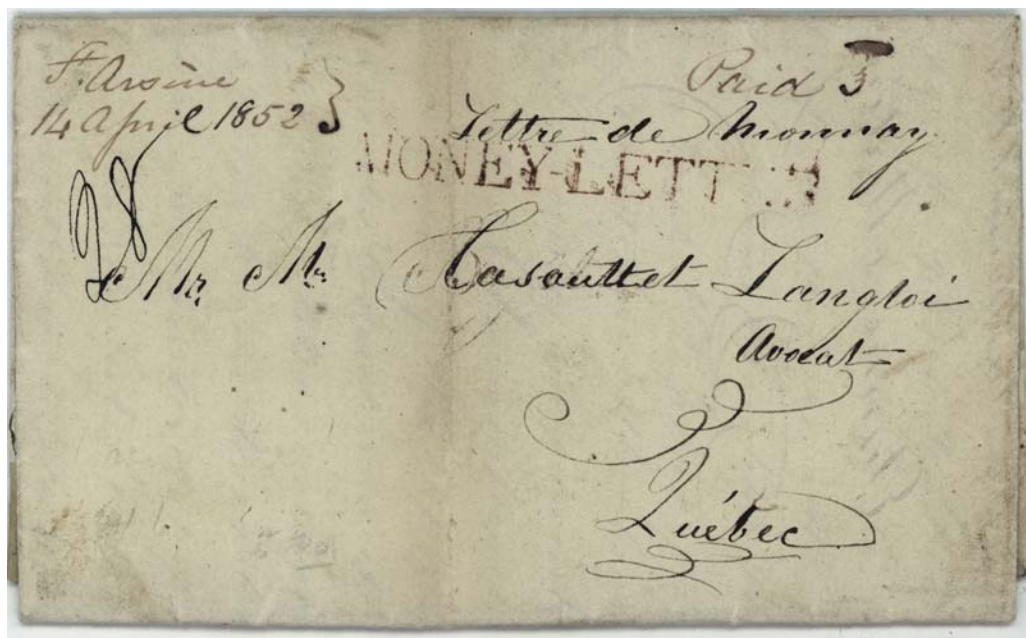 St. Arsène
14 April 1852
Paid 3
Lettre de monnay
MONEY-LETTER
28
Mr. Mr. Casault et Langloi
Avocat
Québec